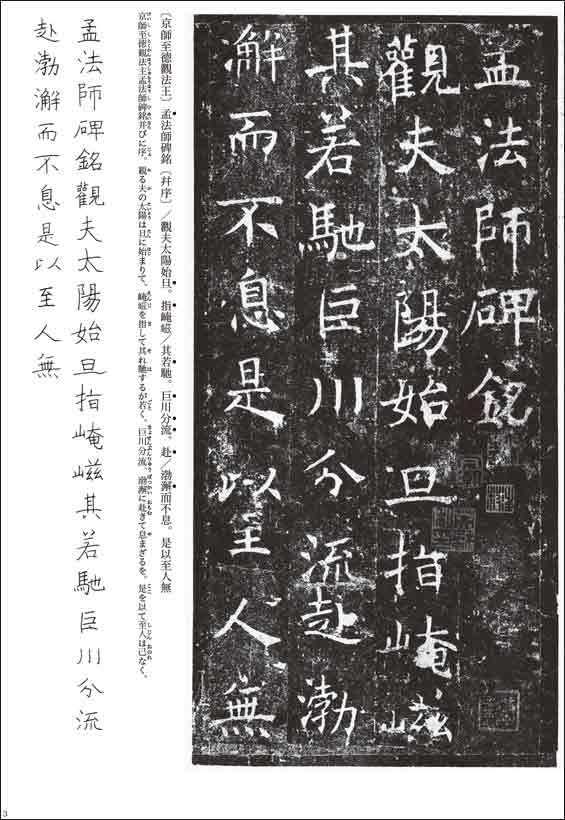 孟法師碑銘
觀夫太陽始旦指崦嵫
其若馳巨川分流赴渤
澥而不息是以至人無
〔京師至德觀法王〕孟法師碑銘〔幷序〕／觀夫太陽始旦。指崦嵫／其若馳。巨川分流。赴／渤澥而不息。是以至人無
京師至徳觀法主孟法師碑銘并びに序。観る夫の太陽は旦に始まりて、崦嵫を指して其れ馳するが若く、巨川分流、渤澥に赴きて息まざるを。是を以て至人は己なく、
孟法師碑銘觀夫太陽始旦指崦嵫其若馳巨川分流
赴渤澥而不息是以至人無
3